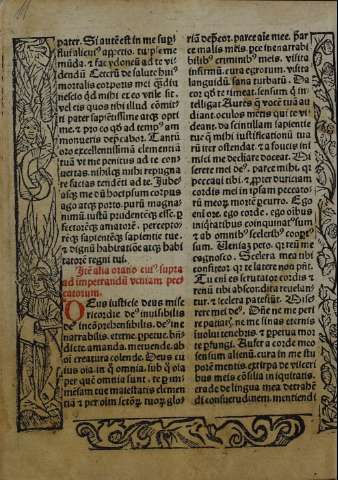 pater. Si autē est in me sup
flui alicuiꝰ appetio. tu p̄ eme
mūda. ⁊ fac ydoneū ad te vi
dendū Ceterū de salute huiꝰ
mortalis corporis mei q̄mdiu
nescio qd mihi ex eo velis sit.
vel eis quos tibi illud cōmitt
ti pater sapientissime atqꝫ opti
me. ⁊ pro eo qd ad tempꝰ am
monueris depcabor. Tantū
oro excellentissimā clementiā
tuā vt me penitus ad te con
uertas. nihilqꝫ mihi repugna
re facias tendēti ad te. Jube
asqꝫ me dū hoc ipsum corpus
ago atqꝫ porto. purū magna
nimū iustū prudentēqꝫ esse. p
fectorēqꝫ amatorē. perceptio
rēqꝫ sapientēqꝫ sapientie tue.
⁊ dignū habitatiōe atqꝫ habi
tatorē regni tui.
Itē alia oratio eiꝰ supra
ad impetrandū veniam pec
catorum.
DEus iusticie deus mise
ricordie deꝰ inuisibilis
deꝰ incōprehensibilis. deꝰ ine
narrabilis. eterne. ppetue. bn̄
dicte. amanda. metuende. ab
oī creatura colende. Deus cu
ius oīa. in q̄ omnia. sub q̄ oīa
per quē omnia sunt. te p im
mēsam tue maiestatis clemen
tiā ⁊ per oīm sctōrꝫ tuorꝫ glos
riā depcor. parce aīe mee. par
ce malis meis. pce inenarrabi
bilibꝰ criminibꝰ meis. visita
infirmū. cura egrotum. visita
languidū. sana turbatū. Da
cor qd te timeat. sensum q̄ in
telligat Aures q̄ vocē tuā au
diant. oculos meos qui te vi
deant. da scintillam sapientie
tue q̄ mihi iustificationū tua
rū iter ostendat. ⁊ a foucis ini
mici me declinare doceat. Da
serere mei deꝰ. parce mihi. qꝫ
peccaui tibi. ⁊ ꝓpter duriciam
cordis mei in ipsam peccato
rū meorꝫ mortē ꝑcurro. Ego
eni ore. ego corde. ego oībus
iniqtatibus coinquinatꝰ sum
⁊ ab omnibꝰ sceleribꝰ cooptꝰ
sum. Veniāqꝫ peto. qꝫ reū me
cognosco. Scelera mea nō
confiteor. qꝫ te latere nō pn̄t
Tu eni es scrutator cordis ⁊
renū tibi abscondita reuelan
tur. ⁊ scelera patefiūt. Mise
rere mei deꝰ. Dn̄e ne me peri
re patiar. ne me sinas eternis
inuolui tenebris ⁊ ꝑpetua mor
te ꝑfungi. Aufer a corde meo
sensum alienū. cura in me stu
porē mentis. extirpa de visceri
bus meis cōsilia iniquitatis.
erade de lingua mea detrahē
di consuetudinem. mentiendi